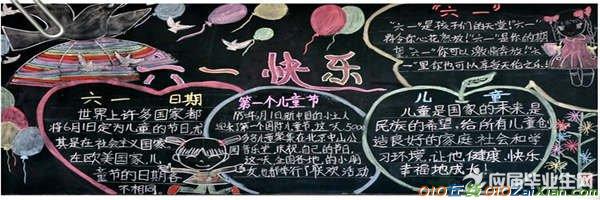 六一快乐
六一 日期
世界上许多国家都
将6月1日定为儿童的节日尤
其是在社会主义国家
在欧美国家,儿
童节的日期各
不相同.
第一个儿童节
1950年6月1日新中国的小主人
第一个国际儿童节.这一天,5000
多名儿童聚集在北京中山公
园音乐堂 庆祝自己的节日.
这一天 全国各地的小朋
友也都举行了联欢活动
儿童
儿童是国家的未来,是
民族的希望,给所有儿童创
造良好的家庭 社会和学
习环境,让他 健康、快乐
幸福地成长
"六一"
"六一"是孩子们的天堂!"六一"
将令你心花怒放!"六一"是你的期
想,"六一"你可以激情奔放!"六
一"里你也可以享受天伦之乐!
010在线 010ZaiXian.com
应届毕业生网